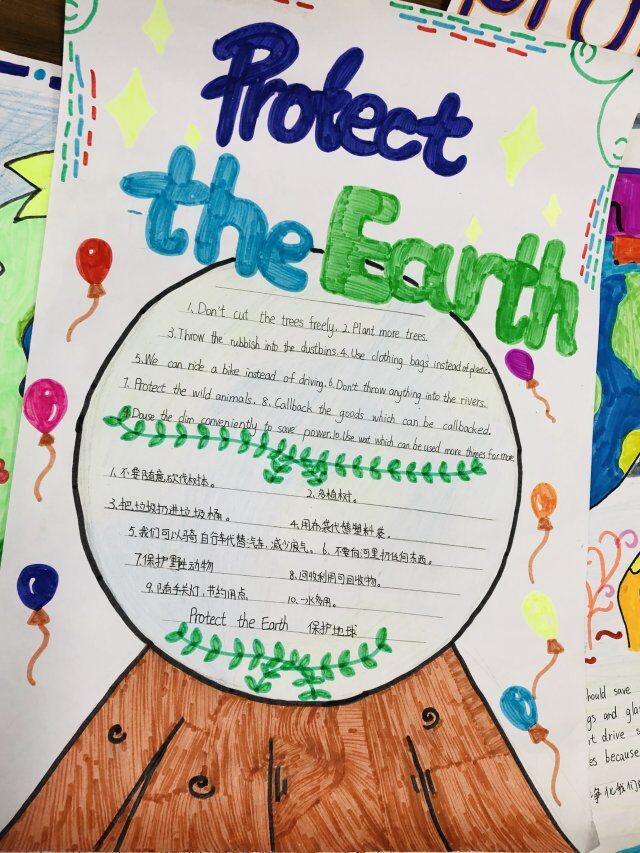 Protect
the Earth
1. Don't cut the trees freely. 2. Plant more trees.
3. Throw the rubbish into the dustbins. 4. Use clothing bags instead of plastic.
5. We can ride a bike instead of driving. 6. Don't throw anything into the rivers.
7. Protect the wild animals. 8. Callback the goods which can be callbacked.
9. Douse the dim conveniently to save power. 10. Use wat which can be used more things for more
1、不要随意砍伐树木。 2、多植树。
3、把垃圾扔进垃圾桶。 4、用布袋代替塑料袋。
5、我们可以骑自行车代替汽车,减少废气。 6、不要向河里扔任何东西。
7、保护野生动物 8、回收利用可回收物。
9、随手关灯,节约用点 10、一水多用。
Protect the Earth 保护地球
should save
gs and gla
't drive s
es because
净化我们